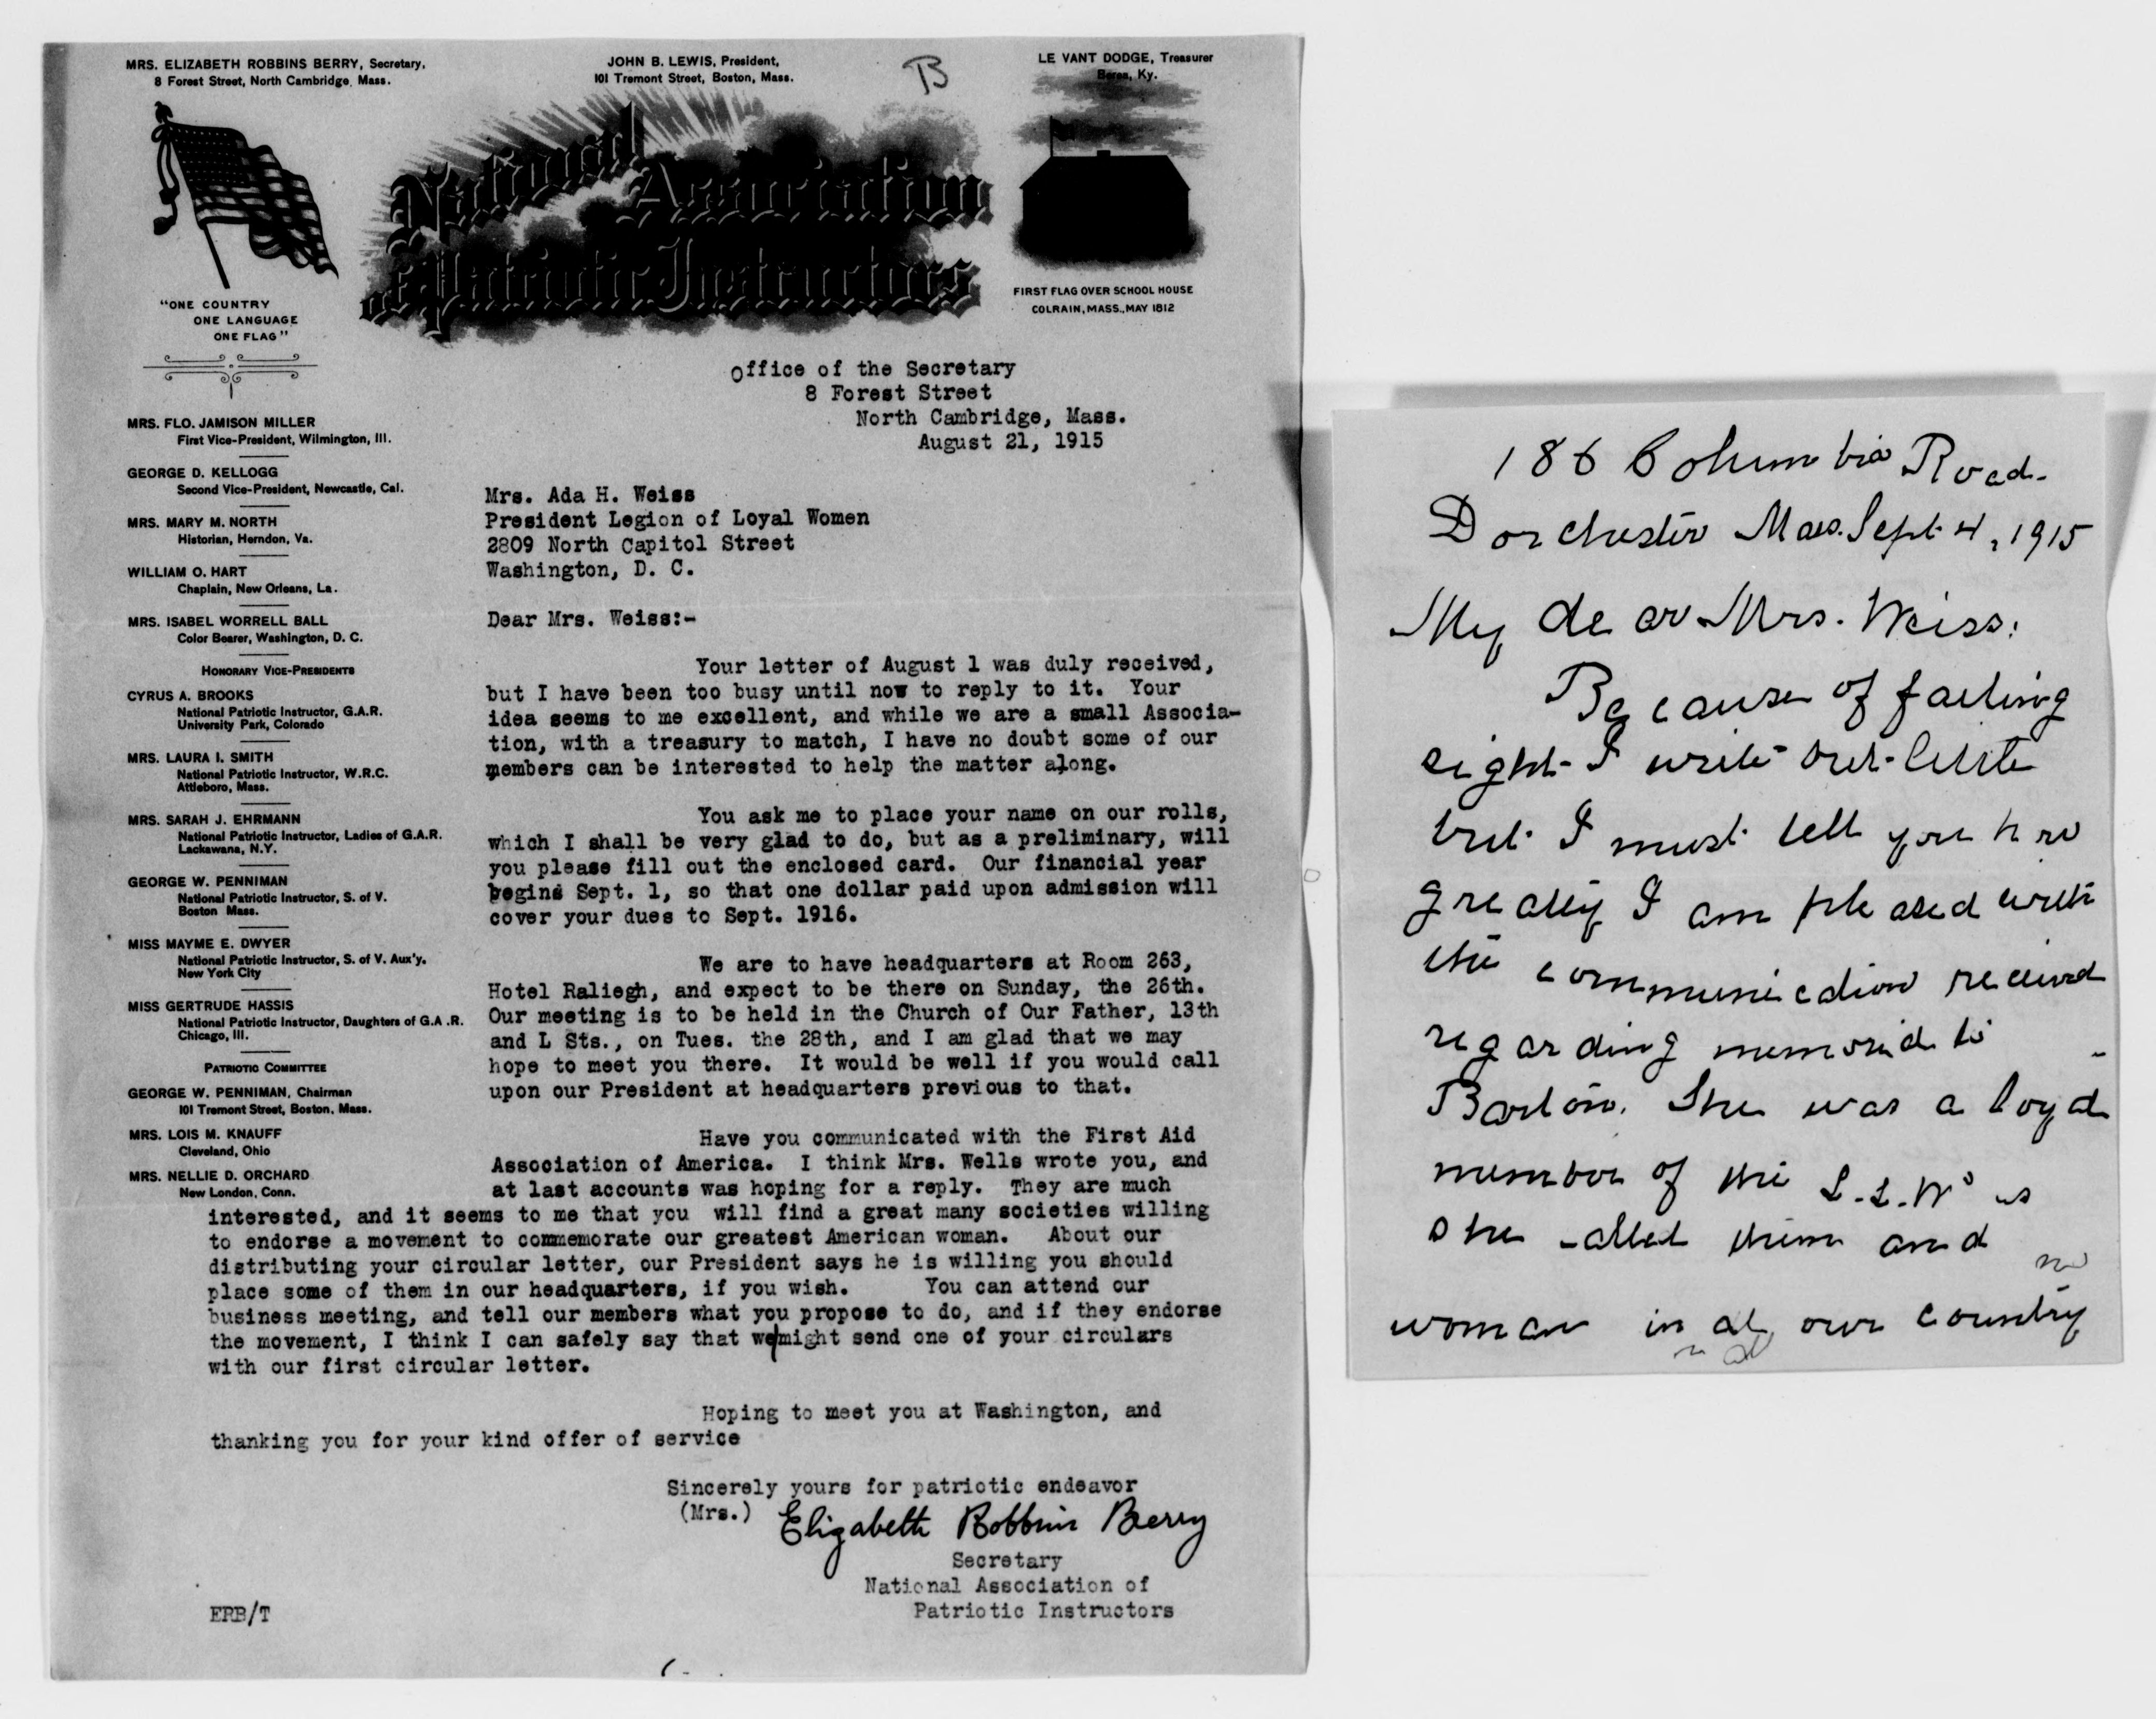 MRS. ELIZABETH ROBBINS BERRY, Secretary,
8 Forest Street, North Cambridge, Mass.
JOHN B. LEWIS, President,
101 Tremont Street, Boston, Mass.
B
LE VANT DODGE, Treasurer
Berea, Ky.
National Association
of Patriotic Instructors
"ONE COUNTRY
ONE LANGUAGE
ONE FLAG"
FIRST FLAG OVER SCHOOL HOUSE
COLRAIN, MASS., MAY 1812
MRS. FLO. JAMISON MILLER
First Vice-President, Wilmington, Ill.
GEORGE D. KELLOGG
Second Vice-President, Newcastle, Cal.
MRS. MARY M. NORTH
Historian, Herndon, Va.
WILLIAM O. HART
Chaplain, New Orleans, La.
MRS. ISABEL WORRELL BALL
Color Bearer, Washington, D. C.
HONORARY VICE-PRESIDENTS
CYRUS A. BROOKS
National Patriotic Instructor, G.A.R.
University Park, Colorado
MRS. LAURA I. SMITH
National Patriotic Instructor, W.R.C.
Attleboro, Mass.
MRS. SARAH J. EHRMANN
National Patriotic Instructor, Ladies of G.A.R.
Lackawana, N.Y.
GEORGE W. PENNIMAN
National Patriotic Instructor, S. of V.
Boston Mass.
MISS MAYME E. DWYER
National Patriotic Instructor, S. of V. Aux'y.
New York City
MISS GERTRUDE HASSIS
National Patriotic Instructor, Daughters of G.A.R.
Chicago, Ill.
PATRIOTIC COMMITTEE
GEORGE W. PENNIMAN, Chairman
101 Tremont Street, Boston, Mass.
MRS. LOIS M. KNAUFF
Cleveland, Ohio
MRS. NELLIE D. ORCHARD
New London, Conn.
Office of the Secretary
8 Forest Street
North Cambridge, Mass.
August 21, 1915
Mrs. Ada H. Weiss
President Legion of Loyal Women
2809 North Capitol Street
Washington, D. C.
Dear Mrs. Weiss:-
Your letter of August 1 was duly received,
but I have been too busy until now to reply to it. Your
idea seems to me excellent, and while we are a small Associa-
tion, with a treasury to match, I have no doubt some of our
members can be interested to help the matter along.
You ask me to place your name on our rolls,
which I shall be very glad to do, but as a preliminary, will
you please fill out the enclosed card. Our financial year
begins Sept. 1, so that one dollar paid upon admission will
cover your dues to Sept. 1916.
We are to have headquarters at Room 263,
Hotel Raliegh, and expect to be there on Sunday, the 26th.
Our meeting is to be held in the Church of Our Father, 13th
and L Sts., on Tues. the 28th, and I am glad that we may
hope to meet you there. It would be well if you would call
upon our President at headquarters previous to that.
Have you communicated with the First Aid
Association of America. I think Mrs. Wells wrote you, and
at last accounts was hoping for a reply. They are much
interested, and it seems to me that you will find a great many societies willing
to endorse a movement to commemorate our greatest American woman. About our
distributing your circular letter, our President says he is willing you should
place some of them in our headquarters, if you wish. You can attend our
business meeting, and tell our members what you propose to do, and if they endorse
the movement, I think I can safely say that we might send one of your circulars
with our first circular letter.
Hoping to meet you at Washington, and
thanking you for your kind offer of service
Sincerely yours for patriotic endeavor
(Mrs.) Elizabeth Robbins Berry
Secretary
National Association of
Patriotic Instructors
ERB/T
186 Columbia Road.
Dorchester Mass. Sept 4, 1915
My dear Mrs. Weiss:
Because of failing
sight I write but little
but I must tell you how
greatly I am pleased with
the communication received
regarding memorial to
Barton. She was a loyal
member of the L.L.W's as
she called them and no
woman in all our country